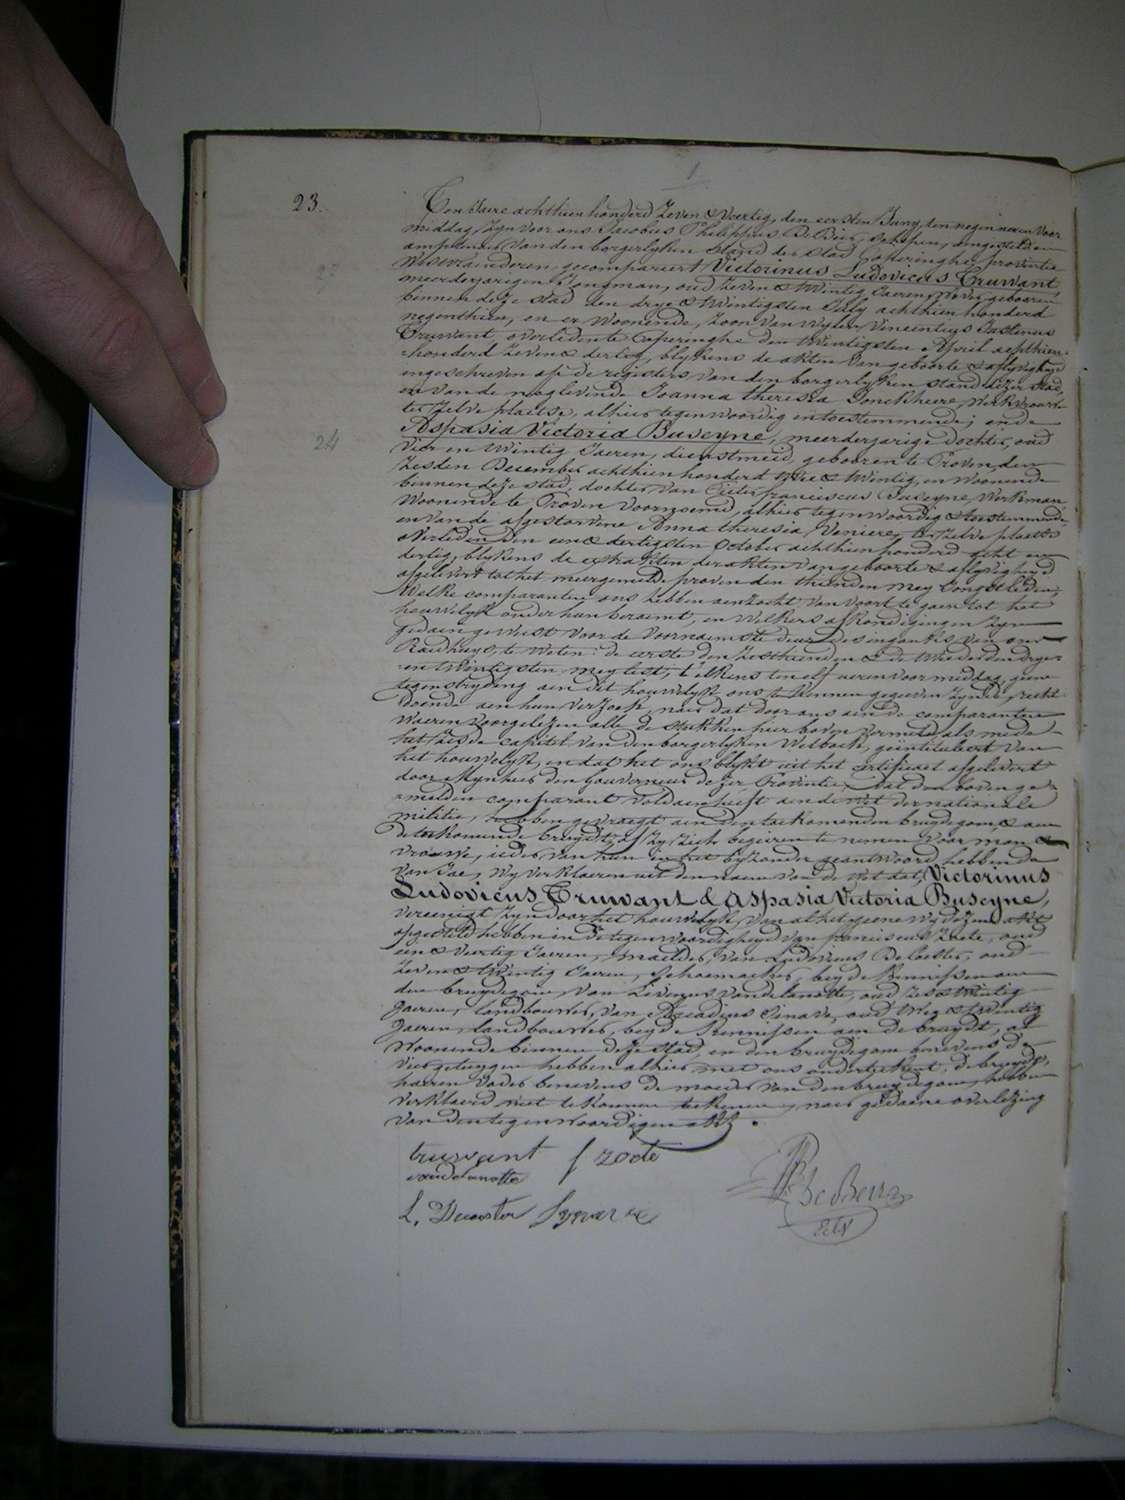 23.
Ten Jaere achthien honderd zeven & veertig, den eersten Juny, ten negen ueren voor
middag, zyn voor ons Jacobus Philippus De Beir, Schepen,
ampten van den borgerlyken Stand der Stad Poperinghe, provintie
Westvlaenderen, gecompareert Victorinus Ludovicus Truwant,
meerderjarigen Jongman, oud zeven & twintig Jaeren, geboren
binnen deze stad den drye & twintigsten July achthien honderd
negenthien, en er woonende, zoon van wylen Vincentius Justinus
Truwant, overleden te Poperinghe den twintigsten April achthien-
honderd zeven & dertig, blykens de akten van geboorte & aflyvigheyd
ingeschreven op de registers van den borgerlyken stand dezer stad,
en van de nog levende Joanna Theresia Jonckheere, Werkvrouw
ter zelve plaetse, alhier tegenwoordig en toestemmende; ende
Aspasia Victoria Buseyne, meerderjarige dochter, oud
24
vier en twintig Jaeren, dienstmeid, gebooren te Proven, den
zesden December achthien honderd twee & twintig, en woonende
binnen deze stad, dochter van Pieter franciscus Buseyne, Werkman
woonende te Proven voornoemd, alhier tegenwoordig & toestemmende
en van de afgestorvene Anna Theresia Veniere, ter zelve plaetse
overleden den een & dertigsten October achthien honderd acht en
dertig, blykens de extrakten der akten van geboorte & aflyvigheyd
afgelevert tot het meergemelde proven den thienden mey
Welke comparanten ons hebben aenzocht van voort te gaen tot het
houwelyk onder hun beraemt, en welkers afkondigingen zyn
gedaen geweest voor de voornaemste deur des ingancks van ons
Raedhuys, te weten: de eerste den zesthienden & de tweede den drye
en twintigsten mey lest, t'elkens ten elf ueren voor middag, geene
tegenstryding aen dit houwelyk ons te kennen gegeven zynde, recht
doende aen hun verzoek, naer dat door ons aen de comparanten
waeren voorgelezen alle de stukken hier boven vermeld, als mede
het zesde capitel van den borgerlyken Wetboek, geintituleert van
het houwelyk, en dat het ons blykt uit het certificaet afgelevert
door Mynheer den Gouverneur dezer Provintie, dat den boven ge-
melden comparant voldaen heeft aen de wet der nationale
militie, hebben gevraegt aen den toekomenden bruydegom, & aen
de toekomende bruydt, of zy zich begeiren te nemen voor man &
vrouwe, ieder van hun in het byzonder geantwoord hebbende
van Jae, wy verklaeren uit den naem van de wet dat, Victorinus
Ludovicus Truwant & Aspasia Victoria Buseyne,
vereenigt zyn door het houwelyk, van al het geene wy dezen akt
opgesteld hebben in de tegenwoordigheyd van franciscus Zoete, oud
een & veertig Jaeren, maelder, van Ludovicus De Coester, oud
zeven & twintig Jaeren, Schoemaeker, beyde kennissen aen
den bruydegom, van Livinus Vandelanotte, oud zes & twintig
Jaeren, landbouwer, van Sinave, oud & twintig
Jaeren, landbouwer, beyde kennissen aen de bruydt, al
woonende binnen deze stad, en den bruydegom benevens de
vier getuygen hebben alhier met ons onderteekent, de bruydt,
haeren vader benevens de moeder van den bruydegom, hebben
verklaerd niet te konnen teekenen, naer gedaene overlezing
van den tegenwoordigen akt.
truwant f zoete
vandelanotte
L. Decoester Synave
De Beir